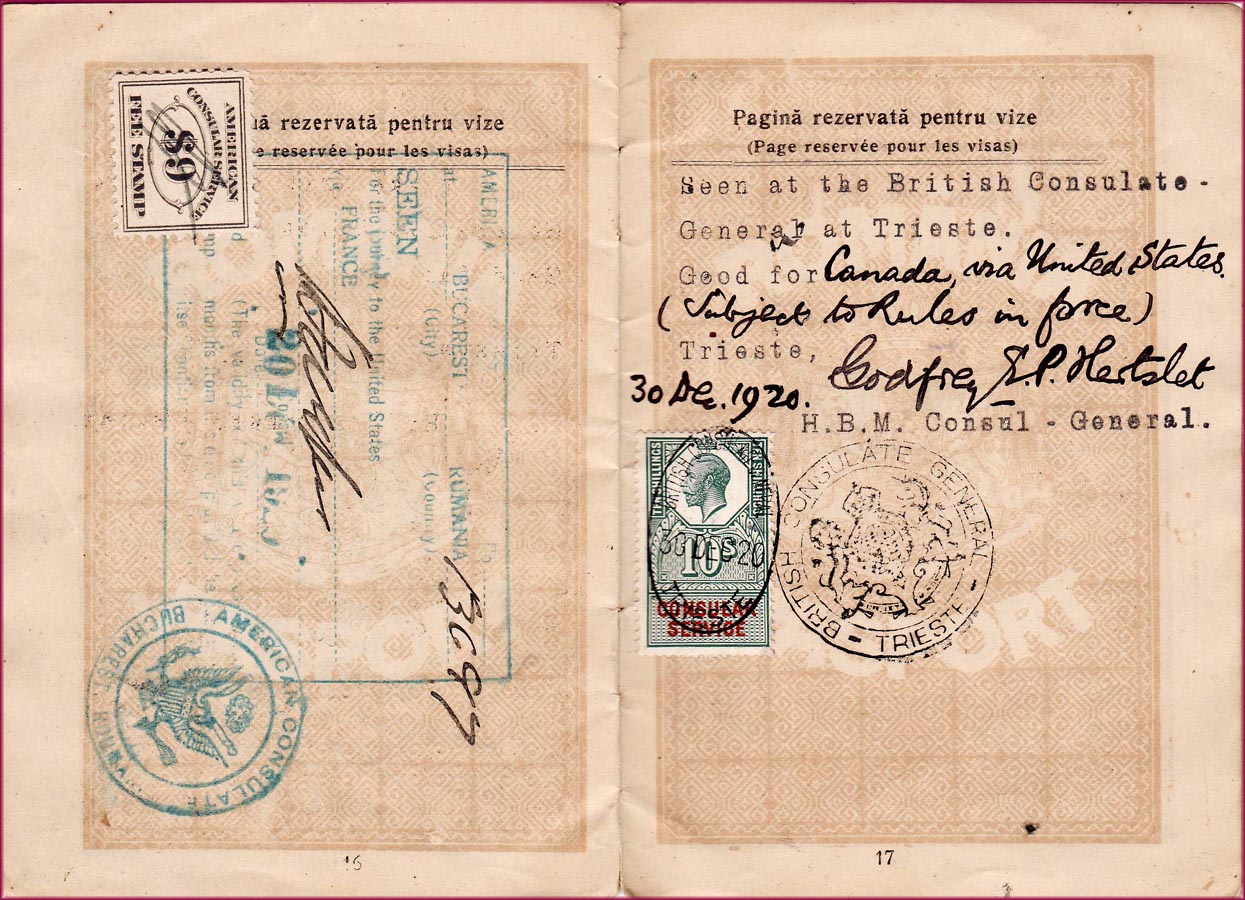 AMERICAN
CONSULAR SERVICE
$9
FEE STAMP
ă rezervată pentru vize
e reservée pour les visas)
AMERICA
at BUCCAREST RUMANIA
(City) (Country)
SEEN
For the journey to the United States
via FRANCE
Date
(The validity of
3697
AMERICAN CONSULATE
BUCHAREST, RUMANIA
16
Pagină rezervată pentru vize
(Page reservée pour les visas)
Seen at the British Consulate-
General at Trieste.
Good for Canada, via United States.
(Subject to Rules in force)
Trieste, Godfrey E.P. Hertslet
30 Dec. 1920.
H.B.M. Consul - General.
TEN SHILLINGS
TEN SHILLINGS
30 DEC 20
10S
CONSULAR
SERVICE
BRITISH CONSULATE GENERAL
- TRIESTE -
PORT
17